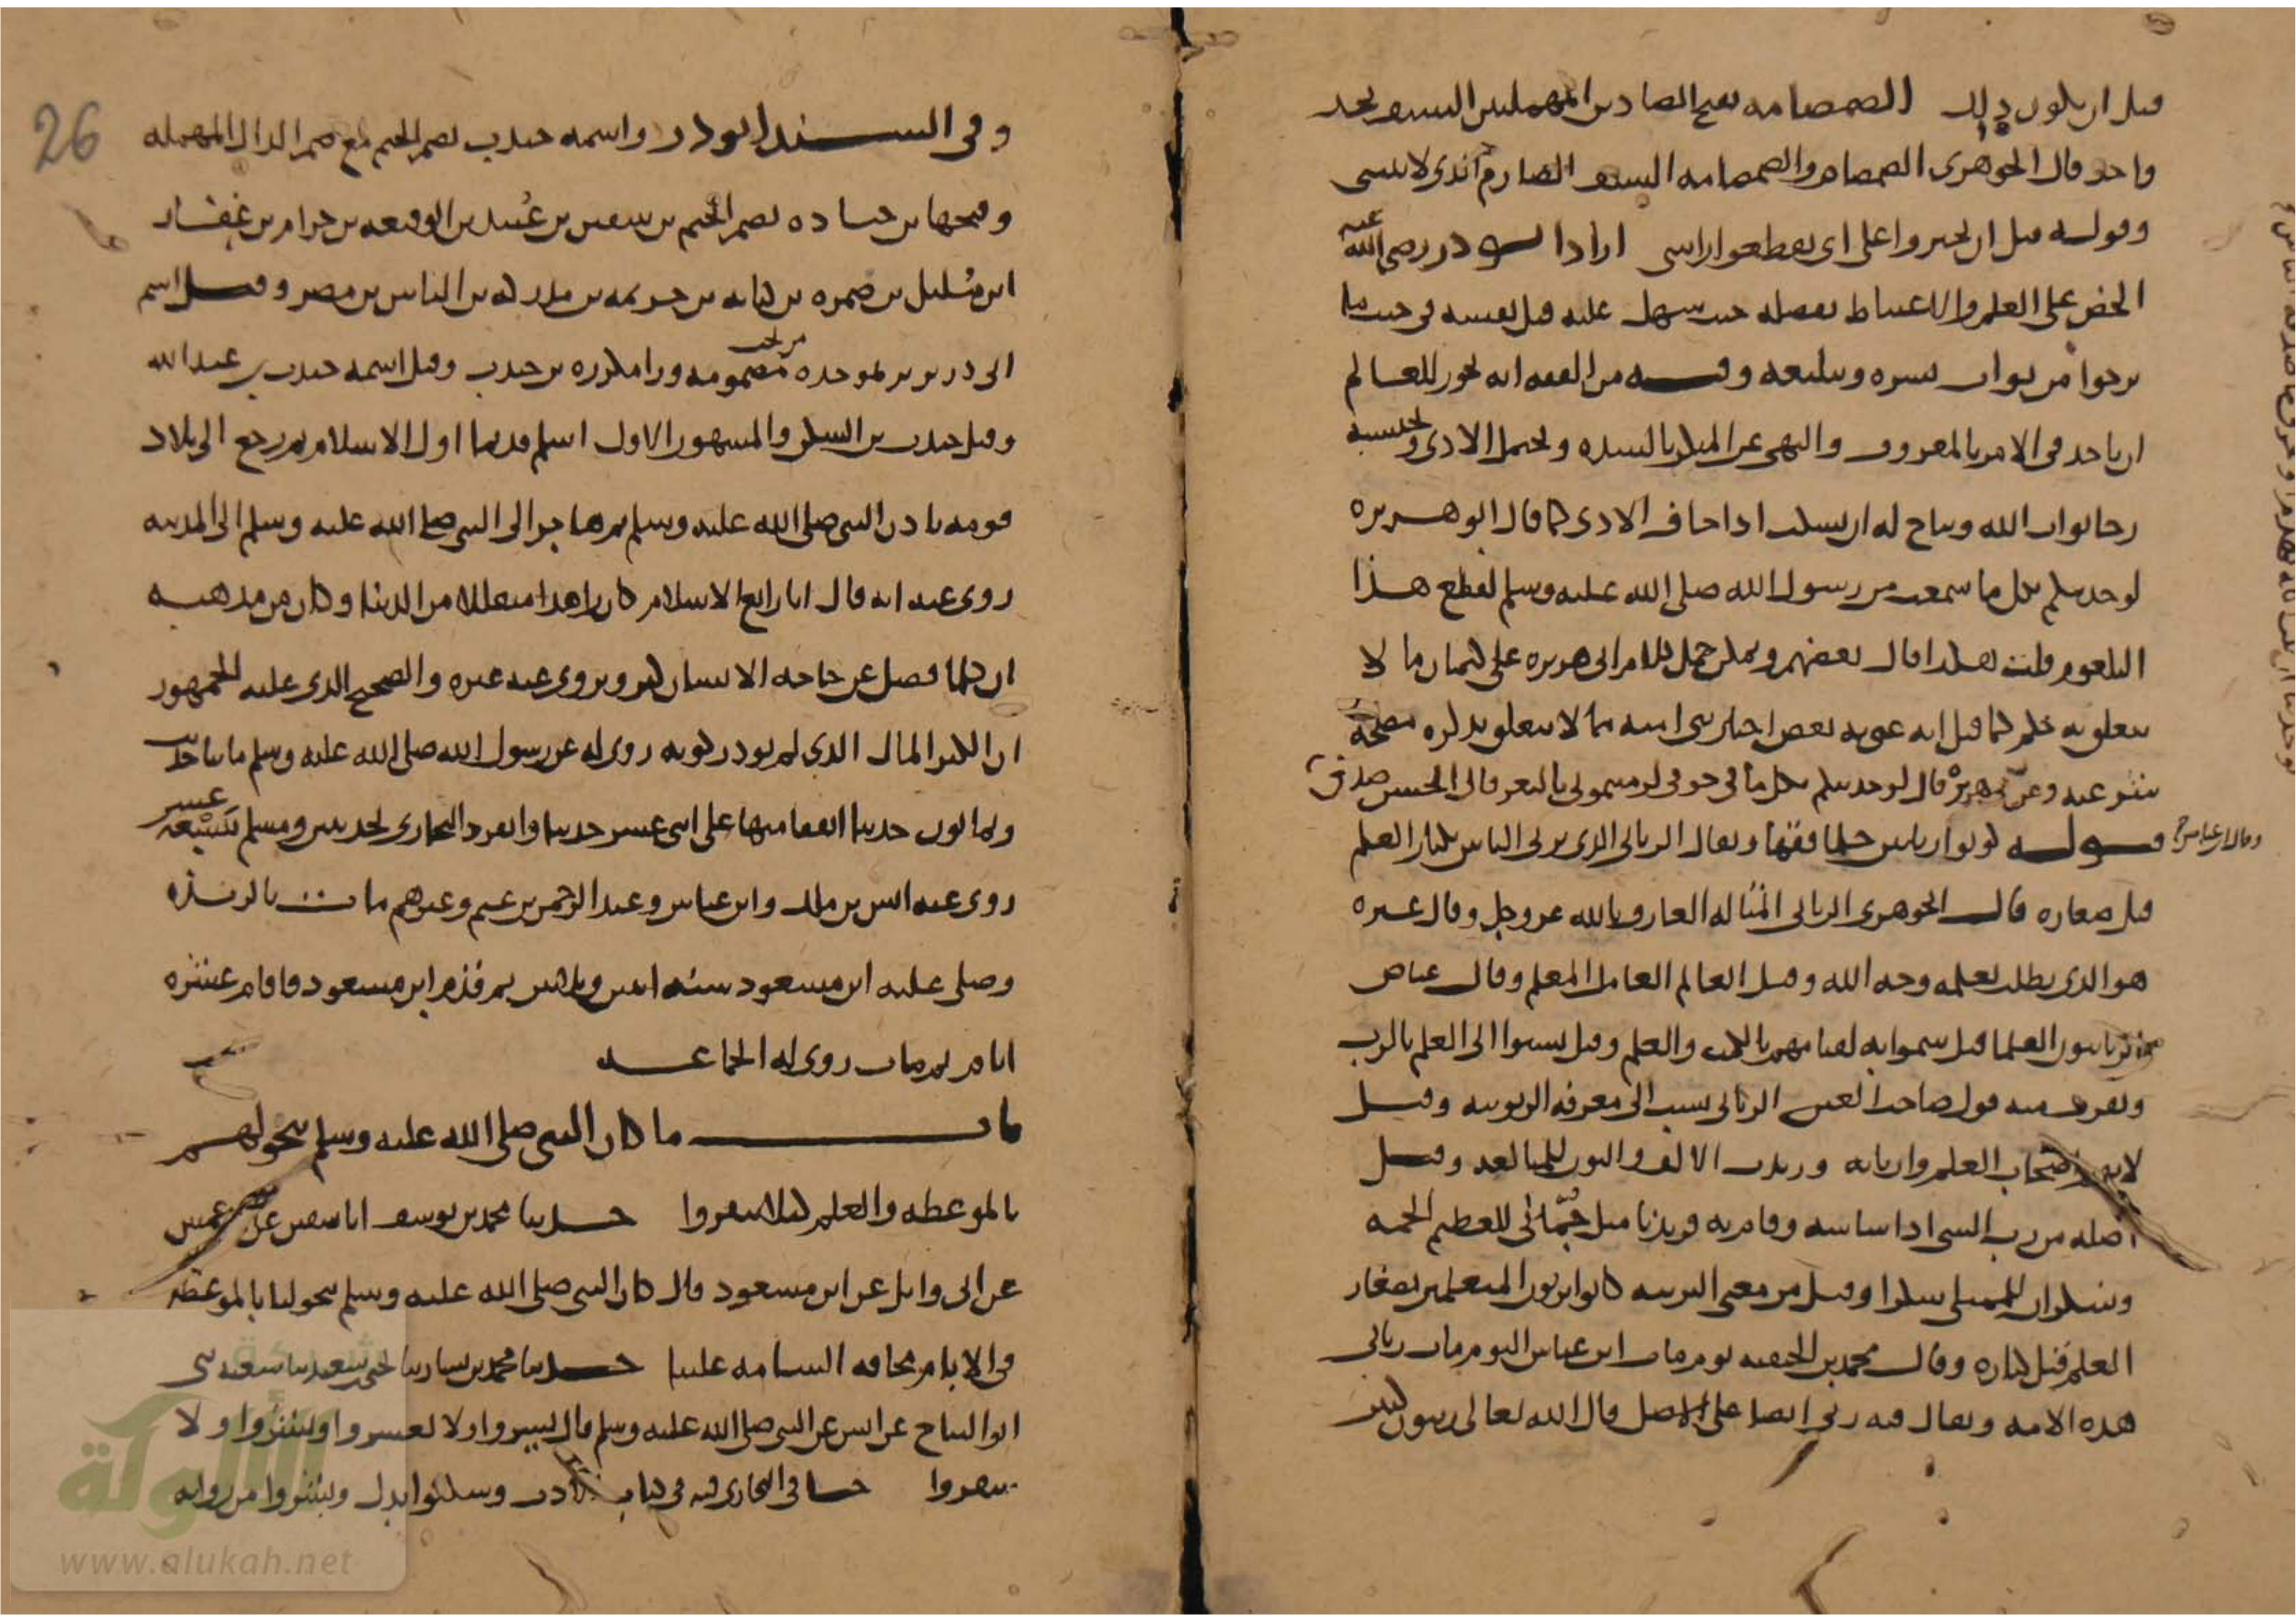 قبل ان يكون ذلك الصمصامه بفتح الصادين المهملتين السيف بحد
واحد قال الجوهرى الصمصام والصمصامه السيف الصارم الذى لا ينثنى
وقوله قبل ان تجيزوا على اى تقطعوا راسى اراد ابو ذر رضى الله عنه
الحض على العلم والاغتباط بفضله حيث سهل عليه قتل نفسه فى جنب ما
يرجوا من ثواب نشره وتبليغه وفيه من الفقه انه يجوز للعالم
ان ياخذ فى الامر بالمعروف والنهى عن المنكر بالشده ويحتمل الاذى ويحتسبه
رجا ثواب الله ويباح له ان يسكت اذا خاف الاذى كما قال ابو هريره
لو حدثتكم بكل ما سمعت من رسول الله صلى الله عليه وسلم لقطع هذا
البلعوم قلت هكذا قال بعضهم ويمكن حمل كلام ابى هريره على كتمان ما لا
يتعلق به حكم كما قيل انه عنى به بعض اخبار بنى اميه مما لا يتعلق بذكره مصلحة
وعن ابى هريرة قال لو حدثتكم بكل ما فى جوفى لرميتمونى بالبعر قال الحسن صدق
وقال ابن عباس
قوله كونوا ربانين حلما فقها ويقال الربانى الذى يربى الناس بكبار العلم
قبل صغاره قال الجوهرى الربانى المتاله العارف بالله عز وجل وقال غيره
هو الذى يطلب بعلمه وجه الله وقيل العالم العامل المعلم وقال عياض
الربانيون العلما قيل سموا به لقيامهم بالكتب والعلم وقيل نسبوا الى العلم بالرب
ويقرب منه قول صاحب العين الربانى نسب الى معرفه الربوبيه وقيل
لانهم اصحاب العلم واربابه وزيدت الالف والنون للمبالغه وقيل
اصله من رب الشى اذا ساسه وقام به فزيدتا مثل جُمّانى للعظيم الجمه
وسكران للممتلى سكرا وقيل من معنى التربيه كانوا يربون المتعلمين بصغار
العلم قبل كباره وقال محمد بن الحنفيه يوم مات ابن عباس اليوم مات ربانى
هذه الامه ويقال فيه ربى ايضا على الاصل قال الله تعالى ربيون كثير
26
وفى السند ابو ذر واسمه جندب بضم الجيم مع ضم الدال المهمله
وفتحها بن جناده بضم الجيم بن سفين بن عُبيد بن الوقيعه بن حرام بن غِفار
ابن مُليل بن ضمره بن كنانه بن خزيمه بن مدركه بن الياس بن مضر وقيل اسم
ابى ذر برير بموحده مضمومه ورا مكرره بن جندب وقيل اسمه جندب بن عبد الله
وقيل جندب بن السكن والمشهور الاول اسلم قديما اول الاسلام ثم رجع الى بلاد
قومه باذن النبى صلى الله عليه وسلم ثم هاجر الى النبى صلى الله عليه وسلم الى المدينه
روى عنه انه قال انا رابع الاسلام كان زاهدا متقللا من الدنيا وكان من مذهبه
ان كلما فضل عن حاجه الانسان كنز ويروى عنه غيره والصحيح الذى عليه الجمهور
ان الكنز المال الذى لم تودى زكوته روى له عن رسول الله صلى الله عليه وسلم مايتا حديث
وثمانون حديثا اتفقا منها على اثنى عشر حديثا وانفرد البخارى بحديثين ومسلم بتسعة عشر
روى عنه انس بن ملك وابن عباس وعبد الرحمن بن غنم وغيرهم مات بالربذه
وصلى عليه ابن مسعود سنه اثنين وثلاثين ثم قدم ابن مسعود فاقام عشره
ايام ثم مات روى له الجماعه
باب ما كان النبى صلى الله عليه وسلم يتخولهم
بالموعظه والعلم كيلا ينفروا حدثنا محمد بن يوسف انا سفين عن الاعمش
عن ابى وايل عن ابن مسعود قال كان النبى صلى الله عليه وسلم يتخولنا بالموعظه
فى الايام مخافه السامه علينا حدثنا محمد بن بشار ثنا يحيى بن سعيد ثنا شعبه ثنى
ابو التياح عن انس عن النبى صلى الله عليه وسلم قال يسروا ولا تعسروا وبشروا ولا
تنفروا فى البخارى فيه فى كتاب الادب وسكنوا بدل وبشروا من روايه
الألوكة
www.alukah.net